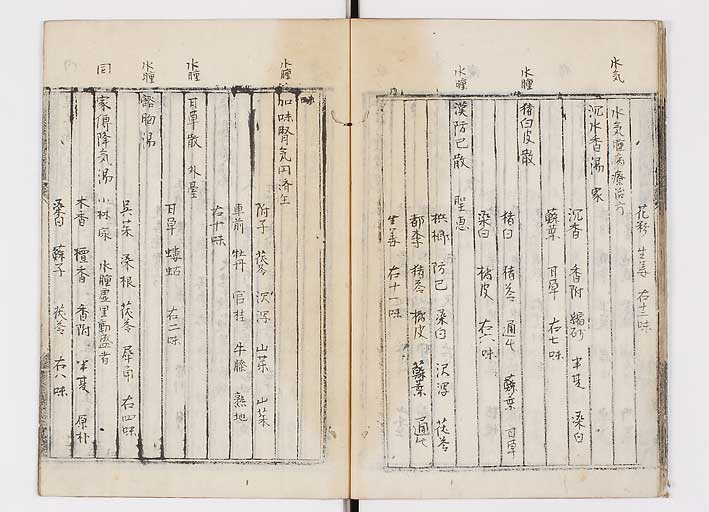 花粉 生姜 右十二味
水気
水気腫病療治方
沉水香湯 家
沉香 香附 縮砂 半夏 桑白
蘇葉 甘草 右七味
水腫
猪白皮散
猪白 猪苓 通屮 蘇葉 甘草
桑白 橘皮 右八味
水腫
漢防已散 聖恵
梹榔 防已 桑白 沢瀉 茯苓
都李 猪苓 橘皮 蘇葉 通屮
生姜 右十一味
水腫
加味腎気円 済生
附子 茯苓 沢瀉 山茱 山茱
車前 牡丹 官桂 牛膝 熟地
右十味
水腫
甘草散 外臺
甘草 螻蛄 右二味
水腫
豁胸湯
呉茱 桑根 茯苓 犀角 右四味
同
家傳降気湯 小林家 水腫虚里動盛者
木香 檀香 香附 半夏 厚朴
桑白 蘇子 茯苓 右八味